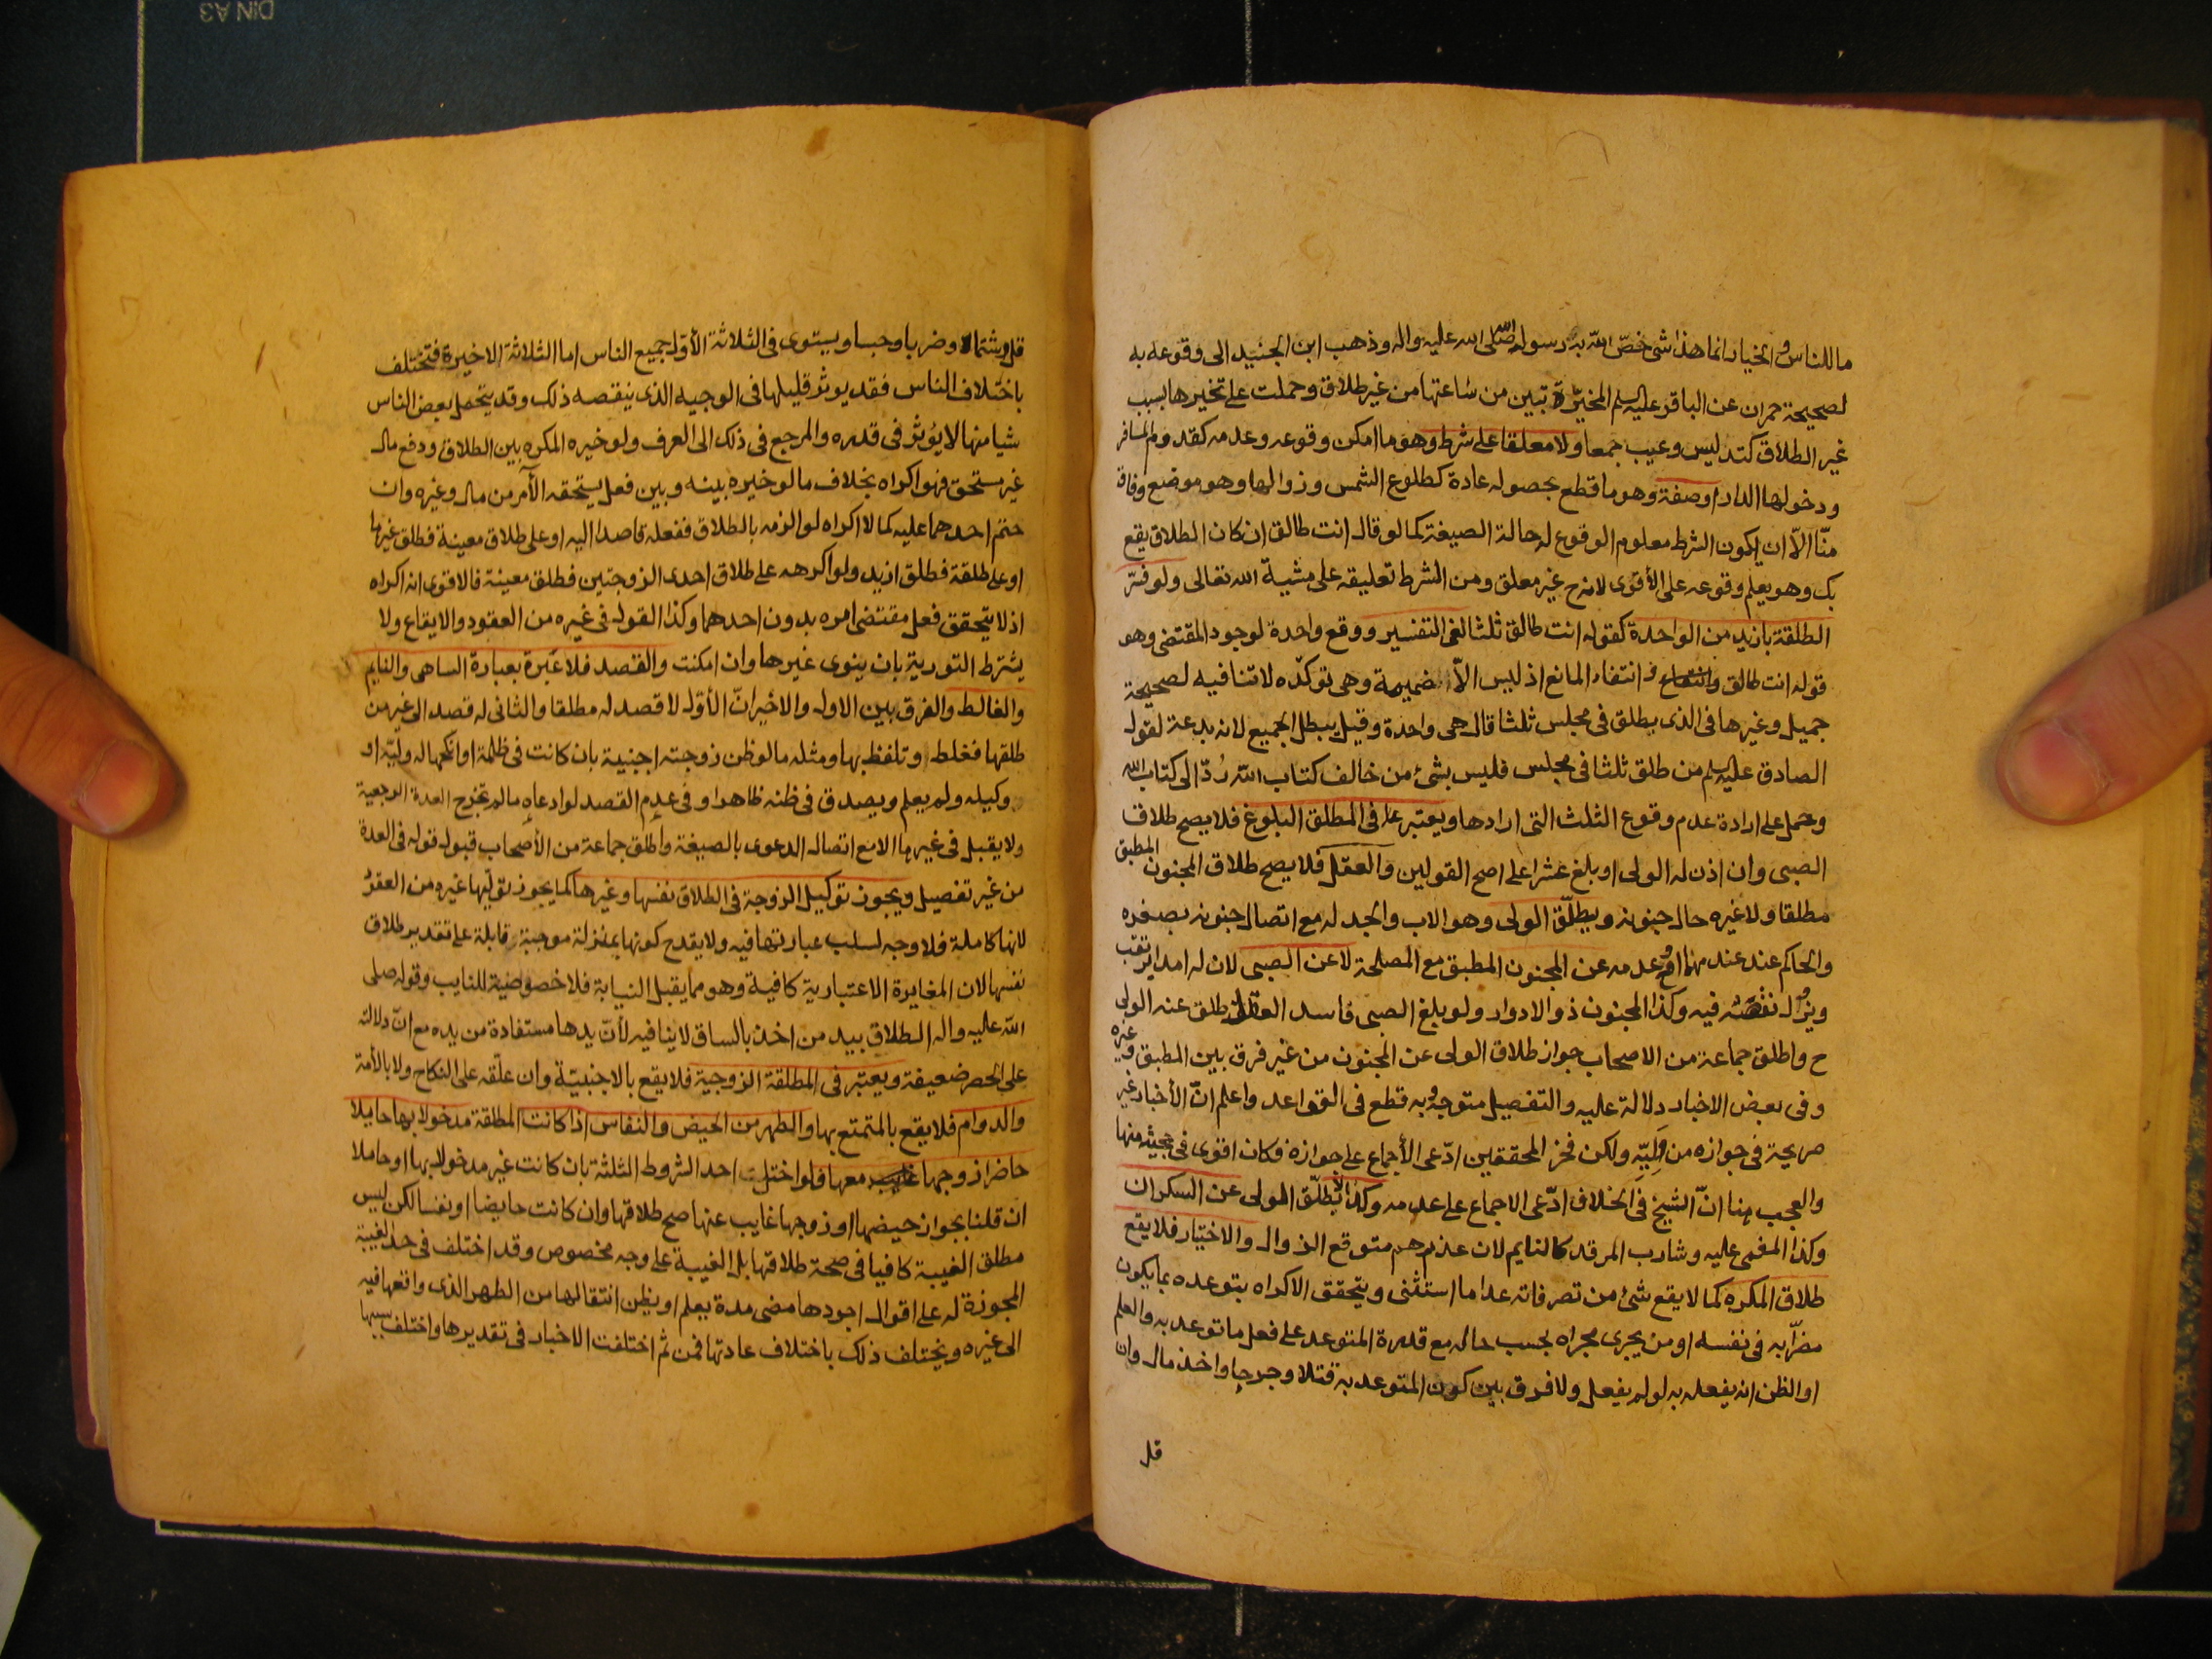 ما للناس والخيار انما هذا شئ خصّ الله به رسوله صلى الله عليه واله وذهب ابن الجنيد الى وقوعه به
لصحيحة حمران عن الباقر عليه السلم المخيّرة تبين من ساعتها من غير طلاق وحملت على تخيرها بسبب
غير الطلاق كتدليس وعيب جمعا ولا معلقا على شرط وهو ما امكن وقوعه وعدمه كقدوم المسافر
ودخولها الدار او صفة وهو ما قطع بحصوله عادة كطلوع الشمس وزوالها وهو موضع وفاق
منّا الّا ان يكون الشرط معلوم الوقوع له حالة الصيغة كما لو قال انت طالق ان كان الطلاق يقع
بك وهو يعلم وقوعه على الأقوى لانه ح غير معلق ومن الشرط تعليقه على مشية الله تعالى ولو فسّر
الطلقة بازيد من الواحدة كقوله انت طالق ثلثا لغى التفسير ووقع واحدة لوجود المقتضى وهو
قوله انت طالق وانتفاء المانع اذ ليس الّا الضميمة وهى توكّده لا تنافيه لصحيحة
جميل وغيرها فى الذى يطلق فى مجلس ثلثا قال هى واحدة وقيل يبطل الجميع لانه بدعة لقول
الصادق عليه السلم من طلق ثلثا فى مجلس فليس بشئ من خالف كتاب الله رُدّ الى كتاب الله
وحمل على ارادة عدم وقوع الثلث التى ارادها ويعتبر فى المطلق البلوغ فلا يصح طلاق
الصبى وان اذن له الولى او بلغ عشرا على اصح القولين والعقل فلا يصح طلاق المجنون المطبق
مطلقا ولا غيره حال جنونه ويطلّق الولى وهو الاب والجد له مع اتصال جنونه بصغره
والحاكم عند عدمهما او مع عدمه عن المجنون المطبق مع المصلحة لا عن الصبى لان له امدا يرتقب
ويزول نقصه فيه وكذا المجنون ذو الادوار ولو بلغ الصبى فاسد العقل طلق عنه الولى
ح واطلق جماعة من الاصحاب جواز طلاق الولى عن المجنون من غير فرق بين المطبق وغيره
وفى بعض الاخبار دلالة عليه والتفصيل متوجه وبه قطع فى القواعد واعلم انّ الأخبار غير
صريحة فى جوازه من وليّه ولكن فخر المحققين ادّعى الأجماع على جوازه فكان اقوى فى حجيته منها
والعجب هنا انّ الشيخ فى الخلاف ادّعى الاجماع على عدمه وكذا لا يطلّق الولى عن السكران
وكذا المغمى عليه وشارب المرقد كالنايم لان عذرهم متوقع الزوال والاختيار فلا يقع
طلاق المكره كما لا يقع شئ من تصرفاته عدا ما استثنى ويتحقق الاكراه بتوعده بما يكون
مضرّا به فى نفسه او من يجرى مجراه بحسب حاله مع قدرة المتوعد على فعل ما توعد به والعلم
او الظن انه يفعله به لو لم يفعل ولا فرق بين كون المتوعد به قتلا وجرحا واخذ مال وان
قل
قل وشتما وضربا وحبسا ويستوى فى الثلاثة الأوّل جميع الناس اما الثلاثة الاخيرة فتختلف
باختلاف الناس فقد يوثر قليلها فى الوجيه الذى ينقصه ذلك وقد يتحمل بعض الناس
شيا منها لا يؤثر فى قدره والمرجع فى ذلك الى العرف ولو خيره المكره بين الطلاق ودفع مال
غير مستحق فهو اكراه بخلاف ما لو خيره بينه وبين فعل يستحقه الآمر من مال وغيره وان
حتم احدهما عليه كما لا اكراه لو الزمه بالطلاق ففعله قاصدا اليه او على طلاق معينة فطلق غيرها
او على طلقة فطلق ازيد ولو اكرهه على طلاق احدى الزوجتين فطلق معينة فالاقوى انه اكراه
اذ لا يتحقق فعل مقتضى امره بدون احدهما وكذا القول فى غيره من العقود والايقاع ولا
يشترط التورية بان ينوى غيرها وان امكنت والقصد فلا عبرة بعبارة الساهى والنايم
والغالط والفرق بين الاول والاخير انّ الأوّل لا قصد له مطلقا والثانى له قصد الى غير من
طلقها فغلط وتلفظ بها ومثله ما لو ظن زوجته اجنبية بان كانت فى ظلمة او انكحها له وليّه او
وكيله ولم يعلم ويصدق فى ظنه ظاهرا وفى عدم القصد لو ادعاه ما لم تخرج العدة الرجعية
ولا يقبل فى غيرها الا مع اتصال الدعوى بالصيغة واطلق جماعة من الأصحاب قبول قوله فى العدة
من غير تفصيل ويجوز توكيل الزوجة فى الطلاق نفسها وغيرها كما يجوز تولّيها غيره من العقود
لانها كاملة فلا وجه لسلب عبارتها فيه ولا يقدح كونها بمنزلة موجبة وقابلة على تقدير طلاق
نفسها لان المغايرة الاعتبارية كافية وهو مما يقبل النيابة فلا خصوصية للنايب وقوله صلى
الله عليه واله الطلاق بيد من اخذ بالساق لا ينافيه لأنّ يدها مستفادة من يده مع انّ دلالته
على الحصر ضعيفة ويعتبر فى المطلقة الزوجية فلا يقع بالاجنبيّة وان علّقه على النكاح ولا بالأمة
والدوام فلا يقع بالمتمتع بها والطهر من الحيض والنفاس اذا كانت المطلقة مدخولا بها حايلا
حاضرا زوجها معها فلو اختلّت احد الشروط الثلثة بان كانت غير مدخولا بها او حاملا
ان قلنا بجواز حيضها او زوجها غايب عنها صح طلاقها وان كانت حايضا او نفسا لكن ليس
مطلق الغيبة كافيا فى صحة طلاقها بل الغيبة على وجه مخصوص وقد اختلف فى حد الغيبة
المجوزة له على اقوال اجودها مضى مدة يعلم او يظن انتقالها من الطهر الذى واقعها فيه
الى غيره ويختلف ذلك باختلاف عادتها فمن ثم اختلفت الاخبار فى تقديرها واختلف بسببها